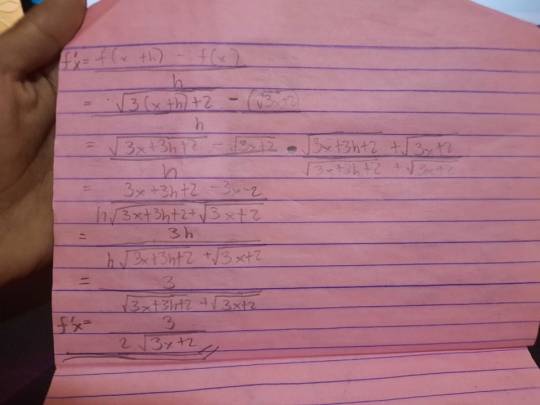 f'x = f(x + h) - f(x)
h
= √3(x+h)+2 - (√3x+2)
h
= √3x+3h+2 - √3x+2 • √3x+3h+2 + √3x+2
h √3x+3h+2 + √3x+2
= 3x+3h+2 - 3x-2
h√3x+3h+2+√3x+2
= 3h
h√3x+3h+2 +√3x+2
= 3
√3x+3h+2 +√3x+2
f'x = 3
2 √3x+2